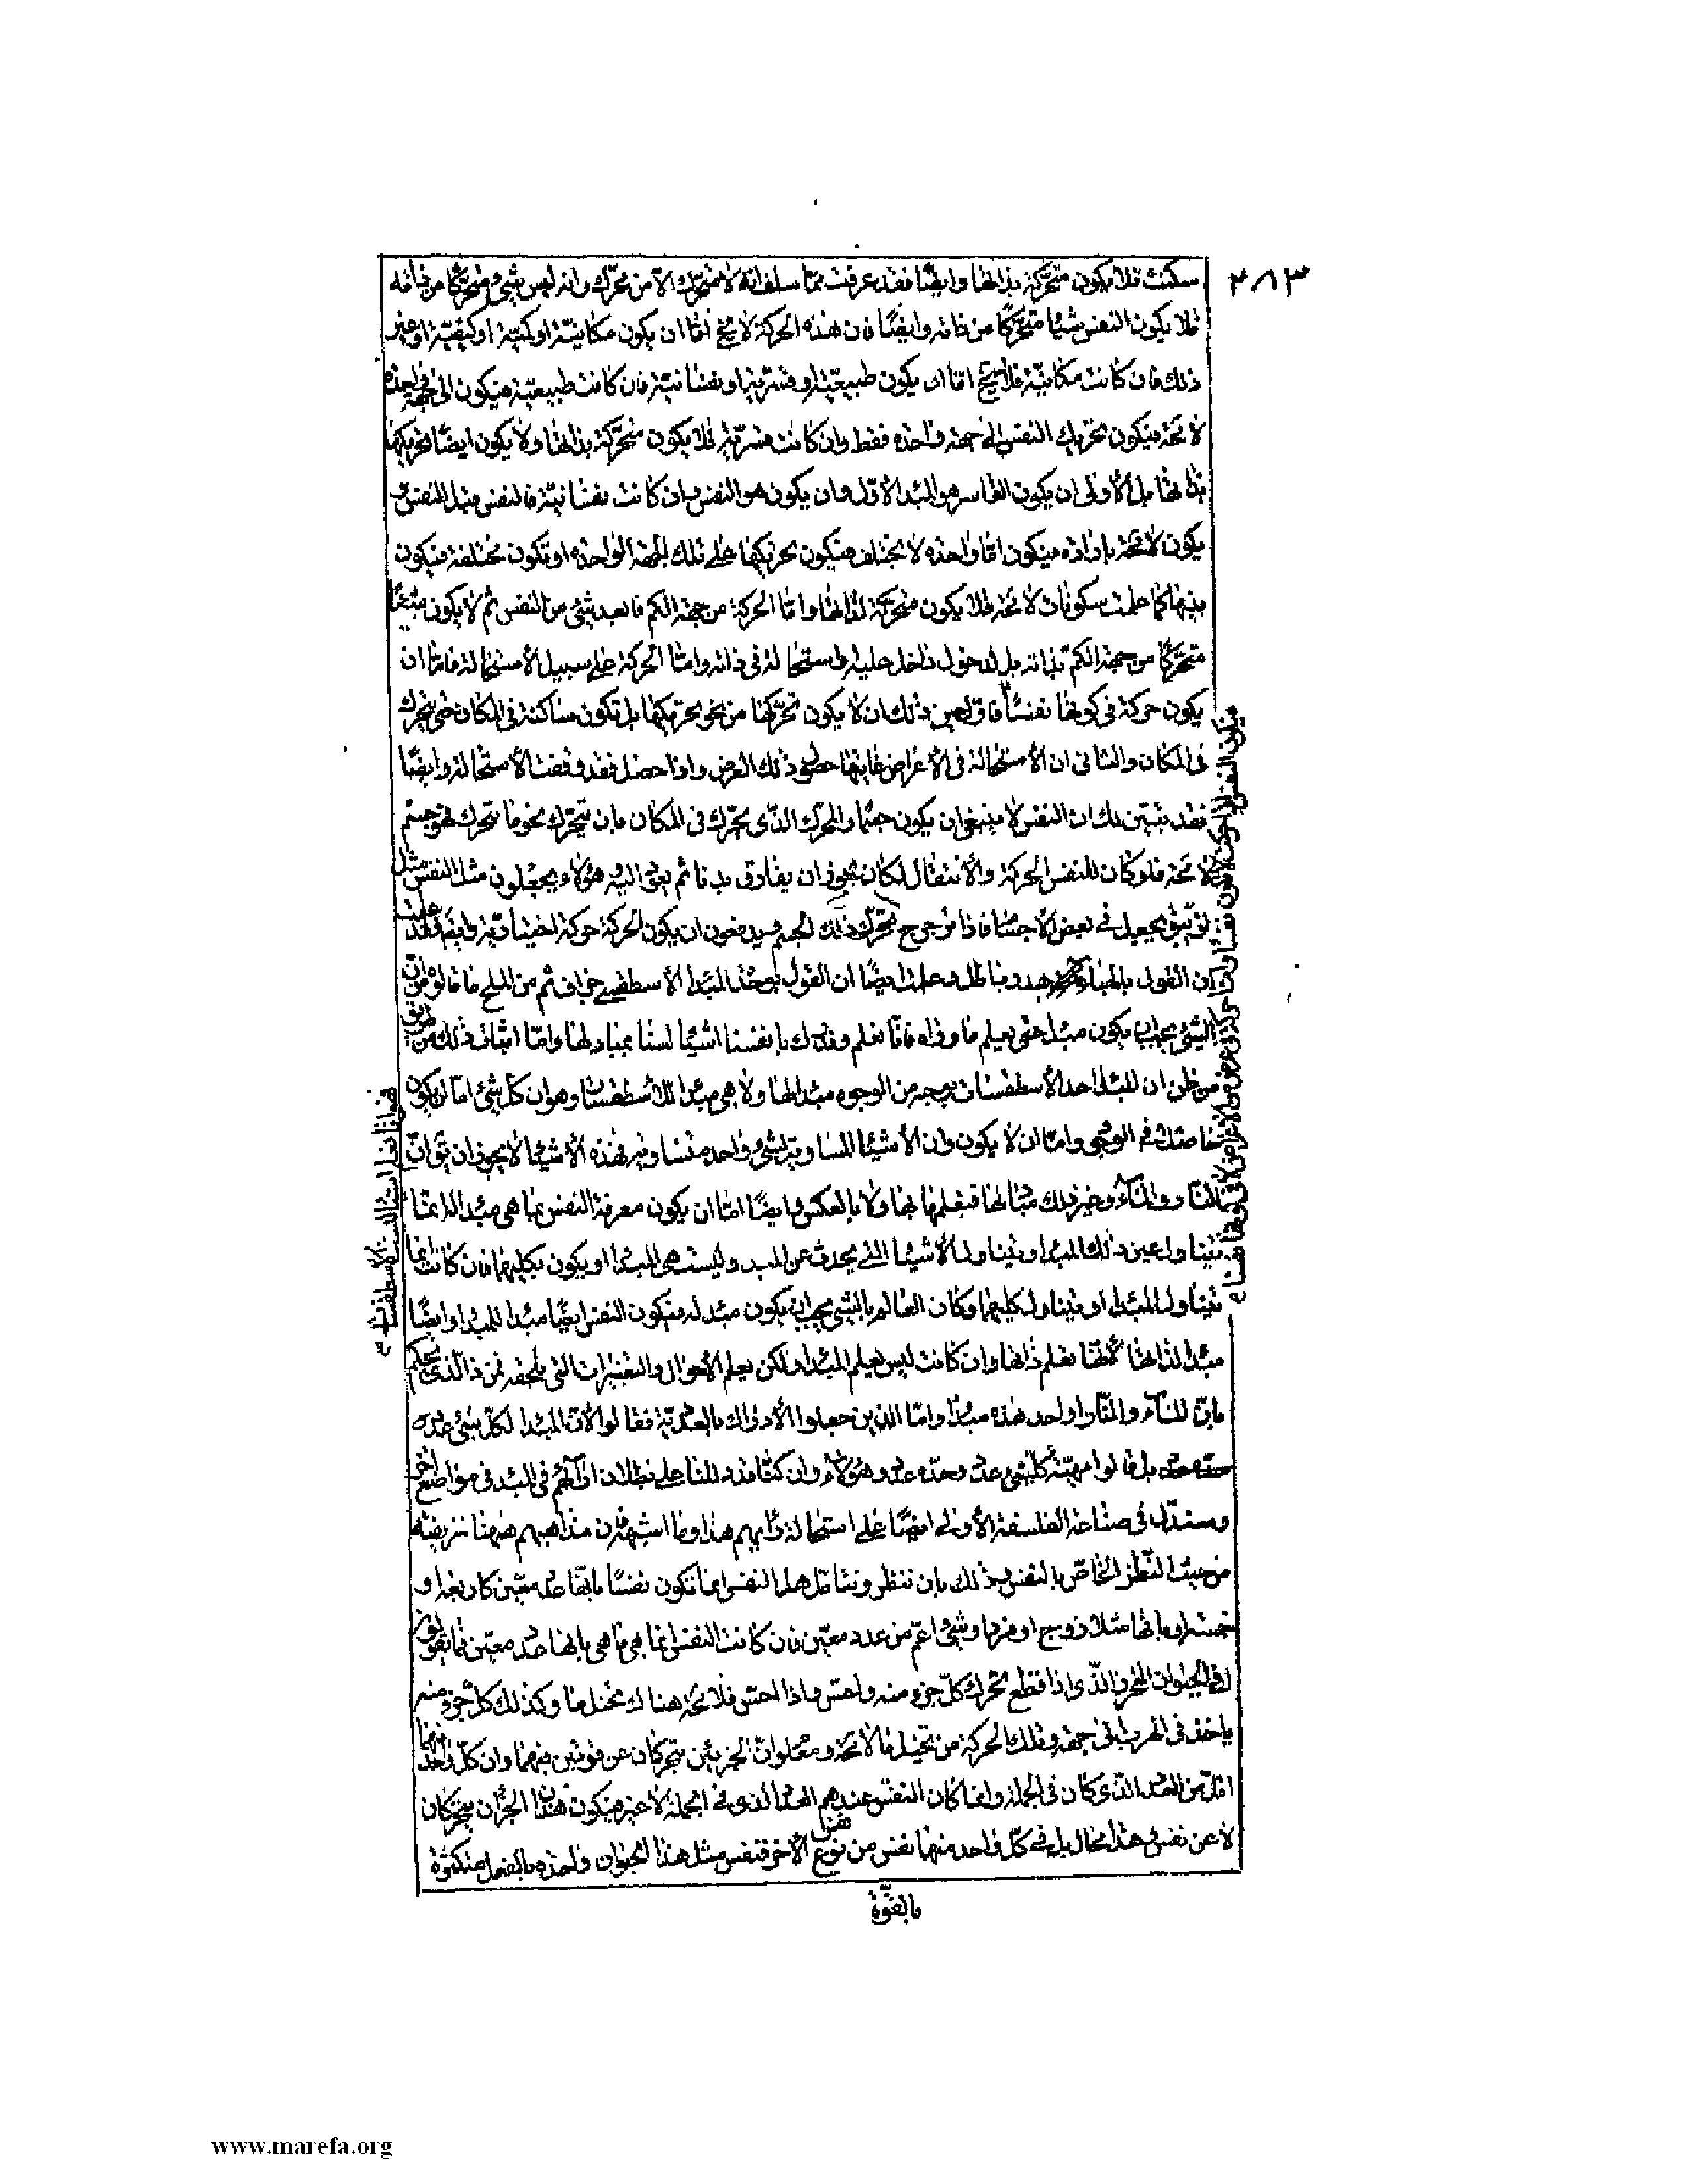 ٣٨٣
سكنت فلا يكون متحركة بذاتها وايضا فقد عرفت مما سلف انه لا متحرك الا من محرك وانه ليس شئ متحركا من ذاته
فلا يكون النفس شيئا متحركا من ذاته وايضا فان هذه الحركة لا يخ اما ان يكون مكانية او كمية او كيفية او غير
ذلك فان كانت مكانية فلا يخ اما ان يكون طبيعية او قسرية او نفسانية فان كانت طبيعية فيكون الى جهة واحدة
لا محة فيكون تحريك النفس الى جهة واحده فقط وان كانت قسرية فلا يكون متحركة بذاتها ولا يكون ايضا تحريكها
بذاتها بل الأولى ان يكون القاسر هو المبدا الاول وان يكون هو النفس وان كانت نفسانية فالنفس قبل النفس و
يكون لا محة بارادة فيكون اما واحده لا يختلف فيكون تحريكها على تلك الجهة الواحده او تكون مختلفة فيكون
بينها كما علمت سكونات لا محة فلا يكون متحركة لذاتها واما الحركة من جهة الكم فابعد شئ من النفس ثم لا يكون شئ
متحركا من جهة الكم بذاته بل لدخول داخل عليه او استحالة في ذاته واما الحركة على سبيل الاستحالة فاما ان
يكون حركة في كونها نفسا
في المكان والثاني ان الأستحالة في الأعراض غايتها حصول ذلك العرض واذا حصل فقد وقفت الأستحالة وايضا
فقد تبين لك ان النفس لا ينبغي ان يكون جسما والمحرك الذي يحرك في المكان بان يتحرك نحو ما يتحرك فهو جسم
لا محة فلو كان للنفس الحركة والأنتقال لكان يجوز ان يفارق بدنا ثم يعود اليه وهؤلاء يجعلون مثل النفس مثل
يجعل في بعض الأجسام فاذا ترجرج تحرك ذلك الجسم ويدفعون ان يكون الحركة حركة اختيارية وايضا فقد علمت
ان القول بالهباء هدر وباطل وعلمت ايضا ان القول بوحدة المبدا الأسطقسي جزاف ثم من الملح ما قالوه من ان
الشئ يجب ان يكون مبدأ حتى يعلم ما وراه فانا نعلم وندرك بانفسنا اشيا لسنا بمباد لها واما اثبات ذلك من طريق
من ظن ان المبدا احد الأسطقسات
متساوية فهذه الأشيا لا يجوز ان يقال ان
النار والماء وغير ذلك مباد لها فنعلمها بها ولا بالعكس وايضا اما ان يكون معرفة النفس بما هى مبدا له انما
يتناول عين ذلك المبدا او يتناول الأشيا التي يحدث عن المبدا وليست هى المبدا او يكون بكليهما فان كانت انما
يتناول المبدا او يتناول كليهما وكان العالم بالشئ يجب ان يكون مبدأ له فيكون النفس ايضا مبدا للمبدا وايضا
مبدا لذاتها لأنها تعلم ذاتها وان كانت ليس يعلم المبدا ولكن يعلم الأحوال والتغيرات التي يلحقه فمن ذا الذي يحكم
بان الماء والنار او احد هذه مبدا واما الذين جعلوا الأدراك بالعددية فقالوا لأن المبدا لكل شئ عدده
بل قالوا مهية كل شئ عدد وحده عدد وهؤلاء وان كنا قد دللنا على بطلان ارائهم في المبدا في مواضع اخر
وسندل في صناعة الفلسفة الأولى ايضا على استحالة رأيهم هذا وما اشبهه فان مذاهبهم ههنا تزيفه
من حيث النظر الخاص بالنفس وذلك بان ننظر ونتامل هل النفس انما تكون نفسا بانها عدد معين كاربعة او
خمسة او بانها مثلا زوج او فرد او شئ اعم من عدد معين فان كانت النفس انما هى ما هى بانها عدد معين فما يقولون
في الحيوان المحزز الذي اذا قطع تحرك كل جزء منه واحس واذا احس فلا محة هناك تخيل ما وكذلك كل جزء منه
ياخذ في الهرب الى جهة وتلك الحركة من تخيل ما لا محة ومعلوم ان الجزئين يتحركان عن قوتين فيهما وان كل واحد منهما
اقل من العدد الذي كان في الجملة وانما كان النفس عندهم العدد الذي في الجملة لا غير فيكون هذان الجزءان يتحركان
لا عن نفس وهذا محال بل في كل واحد منهما نفس من نوع نفس الأخر فنفس مثل هذا الحيوان واحدة بالفعل متكثرة
بالقوة
www.marefa.org